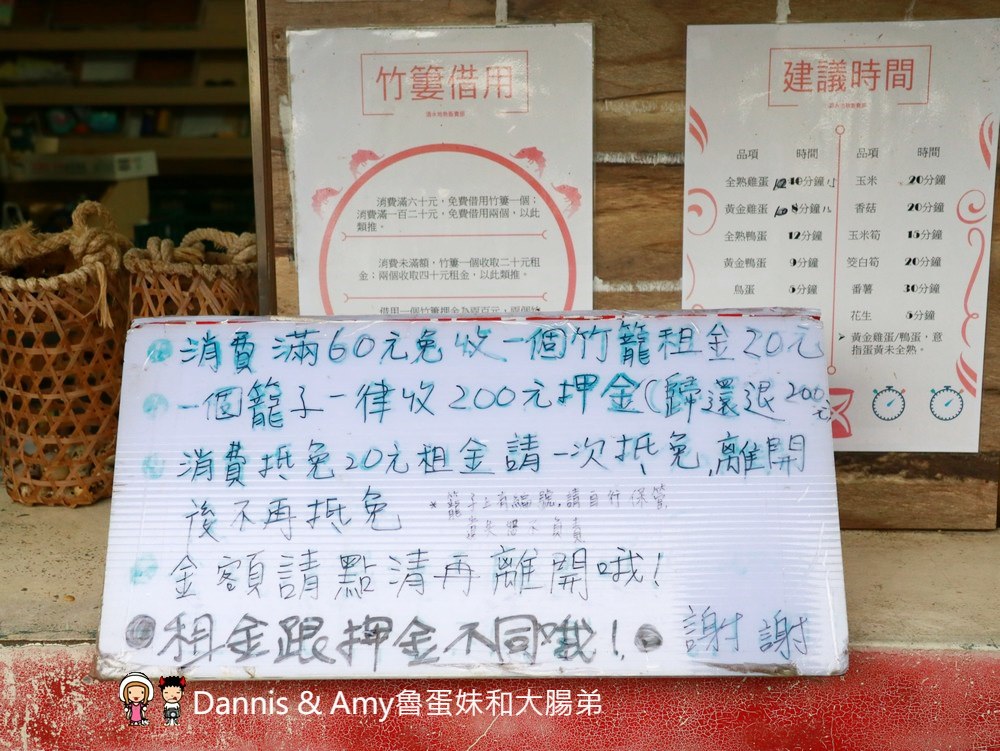 竹簍借用
消費滿六十元，免費借用竹簍一個；
消費滿一百二十元，免費借用兩個，以此
類推。
消費未滿額，竹簍一個收取二十元租
金；兩個收取四十元租金，以此類推。
借用一個竹簍押金為兩百元，兩個
建議時間
品項 時間 品項 時間
全熟雞蛋 10分鐘 玉米 20分鐘
黃金雞蛋 8分鐘 香菇 20分鐘
全熟鴨蛋 12分鐘 玉米筍 15分鐘
黃金鴨蛋 9分鐘 筊白筍 20分鐘
鳥蛋 5分鐘 番薯 30分鐘
花生 5分鐘
黃金雞蛋/鴨蛋，意
指蛋黃未全熟。
消費滿60元免收一個竹籠租金20元
一個籠子一律收200元押金(歸還退200元)
消費抵免20元租金請一次抵免,離開
後不再抵免 *籠子上有編號,請自行保管,
遺失恕不負責
金額請點清再離開哦!
租金跟押金不同哦! 謝謝
Dannis & Amy魯蛋妹和大腸弟